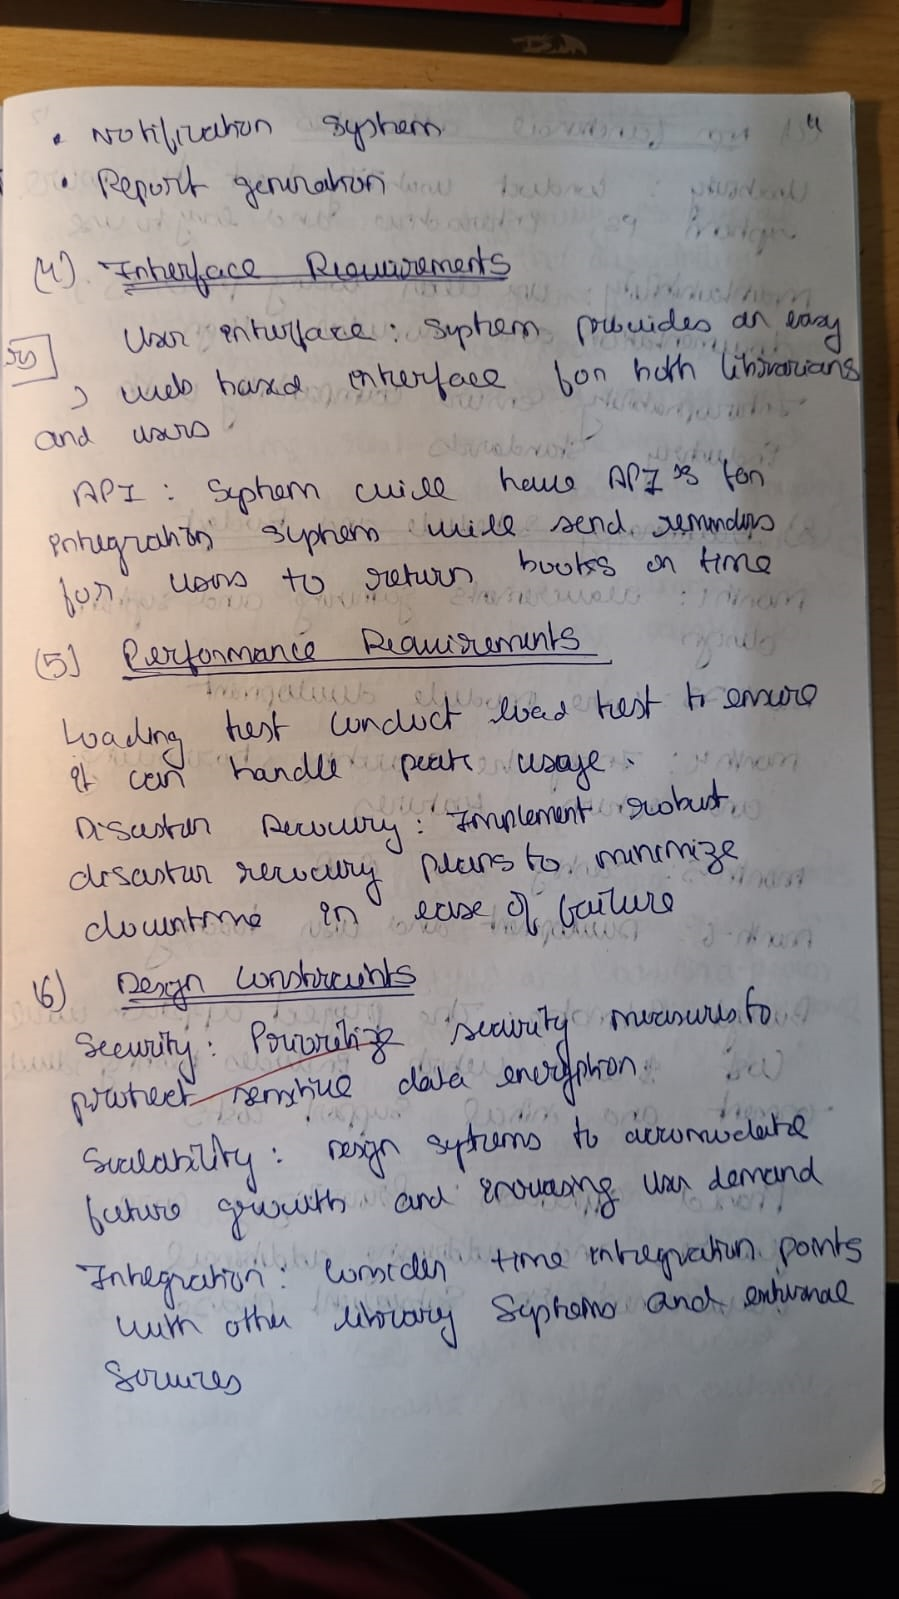 4
• Notification System
• Report generation
(4) Interface Requirements
User interface: System provides an easy
, web based interface for both librarians
and users
API: System will have API's for
integration system will send reminders
for users to return books on time
(5) Performance Requirements
Loading test conduct load test to ensure
it can handle peak usage.
Disaster Recovery: Implement robust
disaster recovery plans to minimize
downtime in case of failure
(6) Design Constraints
Security: Prioritize security measures to
protect sensitive data encryption
Scalability: Design systems to accomodate
future growth and increasing user demand
Integration: Consider time integration points
with other library Systems and external
Services